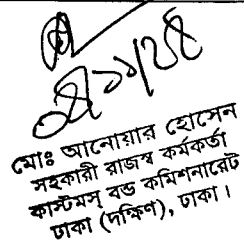 মোঃ আনোয়ার হোসেন
সহকারী রাজস্ব কর্মকর্তা
কাস্টমস্ বন্ড কমিশনারেট
ঢাকা (দক্ষিণ), ঢাকা।